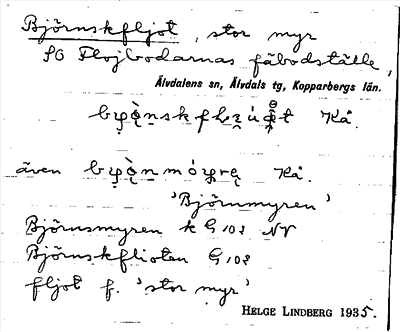 Björnskfljot, stor myr
SO Flojbodarnas fäbodställe,
Älvdalens sn, Älvdals tg, Kopparbergs län.
Kå
även Kå.
'Björnmyren'
Björnsmyren k G 108 NV
Björnskflioten G 108
fljot f. 'stor myr'
HELGE LINDBERG 1935.